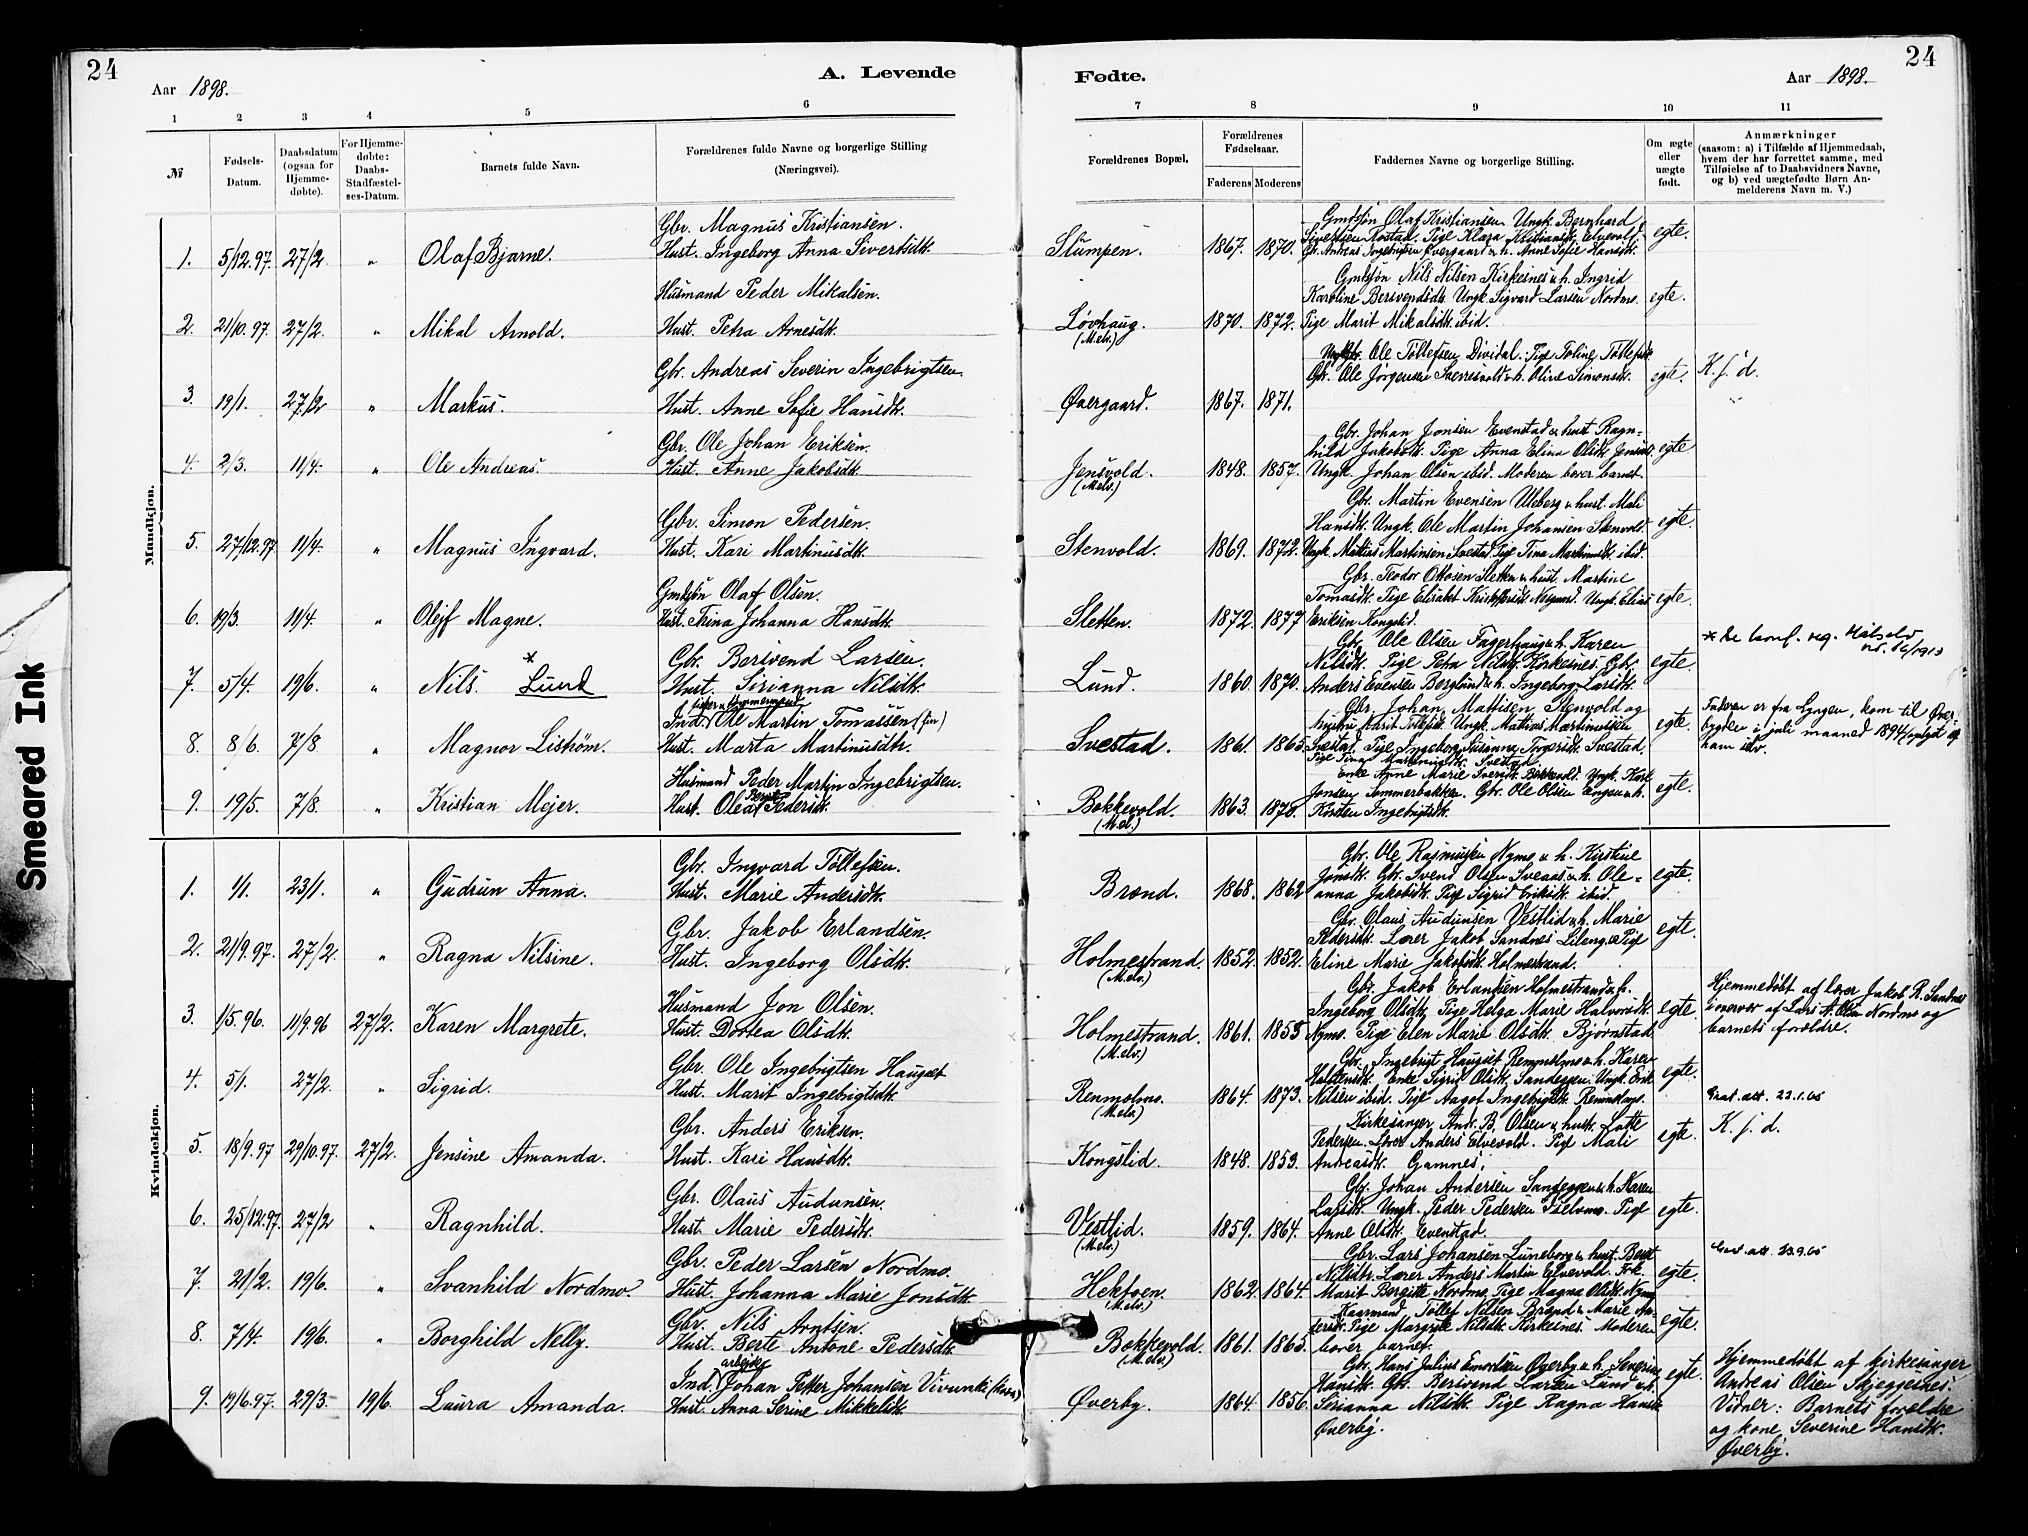 24
Aar 1898.
A. Levende
Fødte.
Aar 1898.
24
1 2 3 4 5 6 7 8 9 10 11
№
Fødsels-Datum.
Daabsdatum (ogsaa for Hjemmedøbte).
For Hjemmedøbte: Daabs-Stadfæstelses-Datum.
Barnets fulde Navn.
Forældrenes fulde Navne og borgerlige Stilling (Næringsvei).
Forældrenes Bopæl.
Forældrenes Fødselsaar.
Faderens Moderens
Faddernes Navne og borgerlige Stilling.
Om ægte eller uægte født.
Anmærkninger
(saasom: a) i Tilfælde af Hjemmedaab, hvem der har forrettet samme, med Tilføielse af to Daabsvidners Navne, og b) ved uægtefødte Børn Anmelderens Navn m. V.)
Mandkjøn.
1. 5/12.97. 27/2 " Olaf Bjarne.
Gbr. Magnus Kristiansen.
Hust. Ingeborg Anna Sivertsdtr.
Slumpen. 1867. 1870.
Gmdsøn Olaf Kristiansen. Ungk. Bernhard
Sivertsen Rostad. Pige Klara Kristiansdt. Elvevold.
Gbr. Andreas Ingebrigtsen Øvergaard & h. Anne Sofie Hansdtr.
egte.
2. 21/10.97. 27/2. " Mikal Arnold.
Husmand Peder Mikalsen.
Hust. Petra Arnesdtr.
Løvhaug. (M.elv.) 1870. 1872.
Gmdsøn Nils Nilsen Kirkesnes & h. Ingrid
Karoline Bersvendsdt. Ungk. Sigvard Larsen Nordmo.
Pige Marit Mikalsdt. ibid.
egte.
3. 19/1. 27/2 " Markus.
Gbr. Andreas Severin Ingebrigtsen.
Hust. Anne Sofie Hansdtr.
Øvergaard. 1867. 1871.
Ole Tøllefsen Dividal. Pige Toline Tøllefsdt.
Gbr. Ole Jørgensen & h. Oline Simonsdt.
egte. K. f. d.
4. 2/3. 11/4. " Ole Andreas.
Gbr. Ole Johan Eriksen.
Hust. Anne Jakobsdtr.
Jensvold. (M.elv.) 1848. 1857.
Gbr. Johan Jonsen Evenstad & hust. Ragn-
hild Jakobsdt. Pige Anna Elina Olsdt. Jensvold.
Ungk. Johan Olsen ibid. Moderen bever barnet.
egte
5. 27/12.97 11/4. " Magnus Ingvard.
Gbr. Simon Pedersen.
Hust. Kari Martinusdtr.
Stenvold. 1869. 1872.
Gbr. Martin Evensen Uleberg & hust. Mali
Hansdt. Ungk. Ole Martin Johansen Stenvold.
Ungk. Matias Martinsen Svestad. Pige Tina Martinusdt. ibid.
egte.
6. 19/3. 11/4. " Olejf Magne.
Gmdsøn Olaf Olsen.
Hust. Trina Johanna Hansdtr.
Sletten. 1872. 1877
Gbr. Teodor Ottosen Sletten & hust. Martine
Tomasdt. Pige Elisabet Ungk. Elias
Eriksen Kongslid.
egte.
7. 5/4. 19/6. " Nils. * Lund
Gbr. Bersvend Larsen.
Hust. Sirianna Nilsdtr.
Lund. 1860. 1870.
Gbr. Ole Olsen Fagerhaug & h. Karen
Nilsdt. Pige Petra Nilsdt. Kirkesnes. Gbr.
Anders Evensen Berglund & h. Ingeborg Larsdt.
egte
* Se konf. reg. Målselv
8. 8/6. 7/8 " Magnor Liström.
Ind. Ole Martin Tomassen (fin)
Hust. Marta Martinusdtr.
Svestad. 1861. 1865.
Gbr. Johan Mattisen Stenvold og
hustru Marit Ungk. Mattias Martinusen
Svestad. Pige Ingeborg Susanna Svestad.
Pige Tina Martinusdt. Svestad
egte.
Faderen er fra Lyngen, kom til Øver-
bygden i juli maaned 1894
ham selv.
9. 19/5. 7/8. " Kristian Mejer.
Husmand Peder Martin Ingebrigtsen.
Hust. Olea Berit Pedersdt.
Bokkevold. (M.elv.) 1863. 1878.
Enke Anne Marie Iversdt. Bokkevold. Ungk. Karl
Jonsen Sommerbakken. Gbr. Ole Olsen Engen & h.
Kirsten Ingebrigtsdt.
egte.
Kvindekjøn.
1. 1/1. 23/1. " Gudrun Anna.
Gbr. Ingvard Tøllefsen.
Hust. Marie Andersdtr.
Brænd. 1868. 1862
Gbr. Ole Rasmussen Nymo & h. Kirstine
Jonsdt. Gbr. Svend Olsen Sveaas & h. Ole-
anna Jakobsdt. Pige Sigrid Eriksdt. ibid.
egte.
2. 21/9.97. 27/2. " Ragna Nilsine.
Gbr. Jakob Erlandsen.
Hust. Ingeborg Olsdtr.
Holmestrand. (M.elv.) 1852. 1852.
Gbr. Olaus Audunsen Vestlid & h. Marie
Pedersdt. Lærer Jakob Sandnes Lileng. Pige
Eline Marie Jakobsdt. Holmestrand.
egte.
3. 1/5.96. 11/9.96 27/2. Karen Margrete.
Husmand Jon Olsen.
Hust. Dortea Olsdtr.
Holmestrand. (M.elv.) 1861. 1855
Gbr. Jakob Erlandsen Holmestrand & h.
Ingeborg Olsdt. Pige Helga Marie Halvorsdt.
Nymo. Pige Elen Marie Olsdt. Bjørnstad
egte.
Hjemmedøbt af lærer Jakob R. Sandnes
i nærvær af Lars A. Olsen Nordmo og
barnets forældre.
4. 5/1. 27/2. " Sigrid.
Gbr. Ole Ingebrigtsen Haugset
Hust. Marit Ingebrigtsdtr.
Renmolmo. (M.elv.) 1864. 1873.
Gbr. Ingebrigt Haugset Renmolmo & h. Karen
Halstensdt. Enke Sigrid Olsdt. Sandeggen. Ungk. Erik
Nilsen ibid. Pige Aagot Ingebrigtsdt. Renmolmo.
egte.
Grat. att. 22.1.65
5. 18/9.97 29/10.97. 27/2. Jensine Amanda.
Gbr. Anders Eriksen.
Hust. Kari Hansdtr.
Kongslid. 1848. 1853.
Kirkesanger And. B. Olsen & hust. Lotte
Pedersen. Lærer Anders Elvevold. Pige Mali
Andreasdt. Gamnes.
egte. K. f. d.
6. 25/12.97. 27/2 " Ragnhild.
Gbr. Olaus Audunsen.
Hust. Marie Pedersdtr.
Vestlid. (M.elv.) 1859. 1864.
Gbr. Johan Andersen Sandeggen & h. Karen
Larsdt. Ungk. Peder Pedersen Pige
Anne Olsdt. Evenstad.
egte.
Grat. att. 23.9.65
7. 21/2. 19/6. " Svanhild Nordmo.
Gbr. Peder Larsen Nordmo.
Hust. Johanna Marie Jonsdtr.
Hektoen. (M.elv.) 1862. 1864.
Gbr. Lars Johansen Luneborg & hust. Berit
Nilsdt. Lærer Anders Martin Elvevold. Frk.
Marit Bergitte Nordmo. Pige Magna Olsdt. Nymo
egte.
8. 7/4. 19/6. " Borghild Nelly.
Gbr. Nils Arntsen.
Hust. Berte Antone Pedersdtr.
Bokkevold. (M.elv.) 1861. 1865.
Kaarmand Tøllef Nilsen Brænd & Marie An-
dersdt. Pige Margrete Nilsdt. Kirkesnes. Moderen
bever barnet.
egte.
9. 19/6.97. 29/3. 19/6. Laura Amanda.
Ind. arbeider Johan Petter Johansen Vivunki
Hust. Anna Serine Mikkelsdt.
Øverby. 1864. 1856.
Gbr. Hans Julius Enoksen Øverby & h. Severine
Hansdt. Gbr. Bersvend Larsen Lund & h.
Sirianna Nilsdt. Pige Ragna Hansdt.
Øverby.
egte.
Hjemmedøbt af kirkesanger
Andreas Olsen Skjeggesnes.
Vidner: Barnets forældre
og kone Severine Hansdtr.
Øverby.
Smeared Ink